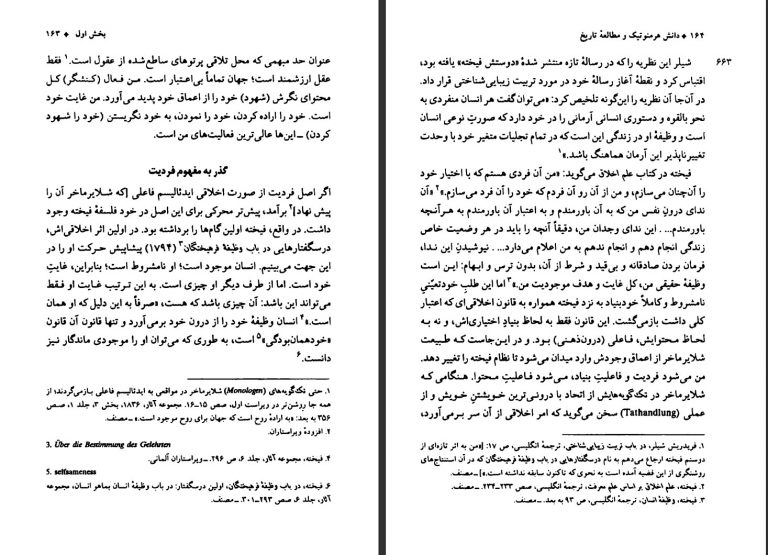 بخش اول ◆ ۱۶۳
عنوان حد مبهمی که محل تلاقی پرتوهای ساطع‌شده از عقول است.۱ فقط
عقل ارزشمند است؛ جهان تماماً بی‌اعتبار است. من فعال (کنشگر) کل
محتوای نگرش (شهود) خود را از اعماق خود پدید می‌آورد. من غایت خود
است. خود را اراده کردن، خود را نمودن، به خود نگریستن (خود را شهود
کردن) ــ این‌ها عالی‌ترین فعالیت‌های من است.
گذر به مفهوم فردیت
اگر اصل فردیت از صورت اخلاقی ایدئالیسم فاعلی [که شلایرماخر آن را
پیش نهاد]۲ برآمد، پیش‌تر محرکی برای این اصل در خود فلسفهٔ فیخته وجود
داشت. در واقع، فیخته اولین گام‌ها را برداشته بود. در اولین اثر اخلاقی‌اش،
درسگفتارهایی در باب وظیفهٔ فرهیختگان۳ (۱۷۹۴) پیشاپیش حرکت او را در
این جهت می‌بینیم. انسان موجود است؛ او نامشروط است؛ بنابراین، غایتِ
خود است. اما از طرف دیگر او چیزی است. به این ترتیب غایت او فقط
می‌تواند این باشد: آن چیزی باشد که هست، «صرفاً به این دلیل که او همان
است.»۴ انسان وظیفهٔ خود را از درون خود برمی‌آورد و تنها قانون آن قانون
«خودهمان‌بودگی»۵ است، به طوری که می‌توان او را موجودی ماندگار نیز
دانست.۶
۱. حتی تک‌گویه‌های (Monologen) شلایرماخر در مواقعی به ایدئالیسم فاعلی بازمی‌گردند؛ از
همه جا روشن‌تر در ویراست اول، صص ۱۵ــ۱۶. مجموعه آثار، ۱۸۳۶، بخش ۳، جلد ۱، صص
۳۵۶ به بعد: «به ارادهٔ روح است که جهان برای روح موجود است.» ــ مصنف.
۲. افزودهٔ ویراستاران.
3. Über die Bestimmung des Gelehrten
۴. فیخته، مجموعه آثار، جلد ۶، ص ۲۹۶. ــ ویراستاران آلمانی.
5. selfsameness
۶. فیخته، در باب وظیفهٔ فرهیختگان، اولین درسگفتار: در باب وظیفهٔ انسان بماهر انسان، مجموعه
آثار، جلد ۶، صص ۲۹۳ــ۳۰۱. ــ مصنف.
۱۶۴ ◆ دانش هرمنوتیک و مطالعهٔ تاریخ
۶۶۳
شیلر این نظریه را که در رسالهٔ تازه منتشر شدهٔ «دوستش فیخته» یافته بود،
اقتباس کرد و نقطهٔ آغاز رسالهٔ خود در مورد تربیت زیبایی‌شناختی قرار داد.
در آن‌جا آن نظریه را این‌گونه تلخیص کرد: «می‌توان گفت هر انسان منفردی به
نحو بالقوه و دستوری انسانی آرمانی را در خود دارد که صورتِ نوعی انسان
است و وظیفهٔ او در زندگی این است که در تمام تجلیات متغیر خود با وحدت
تغییرناپذیر این آرمان هماهنگ باشد.»۱
فیخته در کتاب علم اخلاق می‌گوید: «من آن فردی هستم که با اختیار خود
را آن‌چنان می‌سازم، و من از آن رو آن فردم که خود را آن فرد می‌سازم.»۲ «آن
ندای درونِ نفس من که به آن باورمندم و به اعتبار آن باورمندم به هرآنچه
باورمندم... . این ندای وجدان من، دقیقاً آنچه را باید در هر وضعیت خاص
زندگی انجام دهم و انجام ندهم به من اعلام می‌دارد... . نیوشیدنِ این ندا،
فرمان بردن صادقانه و بی‌قید و شرط از آن، بدون ترس و ابهام: این است
وظیفهٔ حقیقی من، کل غایت و هدف موجودیت من.»۳ اما این طلبِ خودتعیّنیِ
نامشروط و کاملاً خودبنیاد به نزد فیخته همواره به قانون اخلاقی‌ای که اعتبار
کلی داشت بازمی‌گشت. این قانون فقط به لحاظ بنیادِ اختیاری‌اش، و نه به
لحاظ محتوایش، فاعلی (درون‌ذهنی) بود. و در این‌جاست که طبیعت
شلایرماخر از اعماق وجودش وارد میدان می‌شود تا نظام فیخته را تغییر دهد.
من می‌شود فردیت و فاعلیتِ بنیاد، می‌شود فاعلیتِ محتوا. هنگامی که
شلایرماخر در تک‌گویه‌هایش از اتحاد با درونی‌ترین خویشتنِ خویش و از
عملی (Tathandlung) سخن می‌گوید که امر اخلاقی از آن سر برمی‌آورد،
۱. فریدریش شیلر، در باب تربیت زیبایی‌شناختی، ترجمهٔ انگلیسی، ص ۱۷: [«من به اثر تازه‌ای از
دوستم فیخته ارجاع می‌دهم به نام درسگفتارهایی در باب وظیفهٔ فرهیختگان که در آن استنتاج‌های
روشنگری از این قضیه آمده است به نحوی که تاکنون سابقه نداشته است.»] ــ مصنف.
۲. فیخته، علم اخلاق بر اساس علم معرفت، ترجمهٔ انگلیسی، صص ۲۳۳ــ۲۳۴. ــ مصنف.
۳. فیخته، وظیفهٔ انسان، ترجمهٔ انگلیسی، ص ۹۳ به بعد. ــ مصنف.